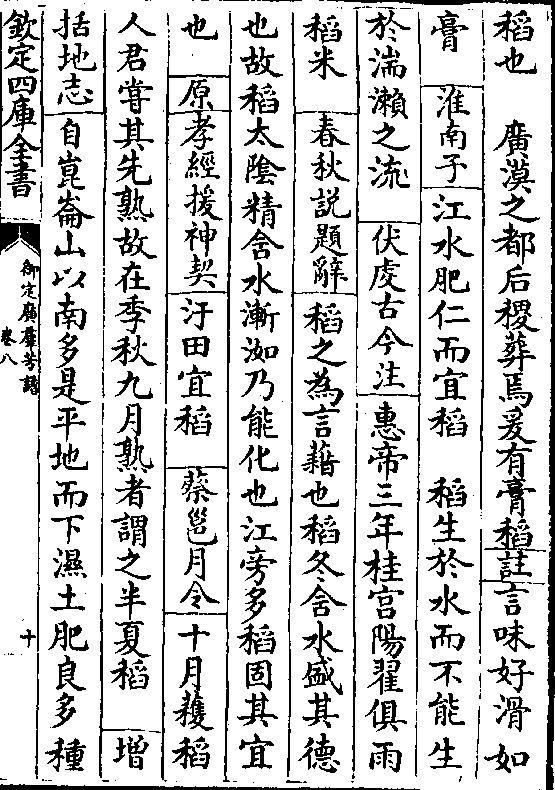 稻也　廣漠之都后稷葬焉爰有膏稻註言味好滑如
膏　淮南子江水肥仁而宜稻　稻生於水而不能生
於湍瀨之流　伏䖍古今注惠帝三年桂宫陽翟俱雨
稻米　春秋說題辭稻之為言藉也稻冬含水盛其德
也故稻太陰精含水漸洳乃能化也江旁多稻固其宜
也　原孝經援神契汙田宜稻　蔡邕月令十月穫稻
人君嘗其先熟故在季秋九月熟者謂之半夏稻　增
括地志自崑崙山以南多是平地而下濕土肥良多種
欽定四庫全書
御定廣羣芳譜
卷八
十